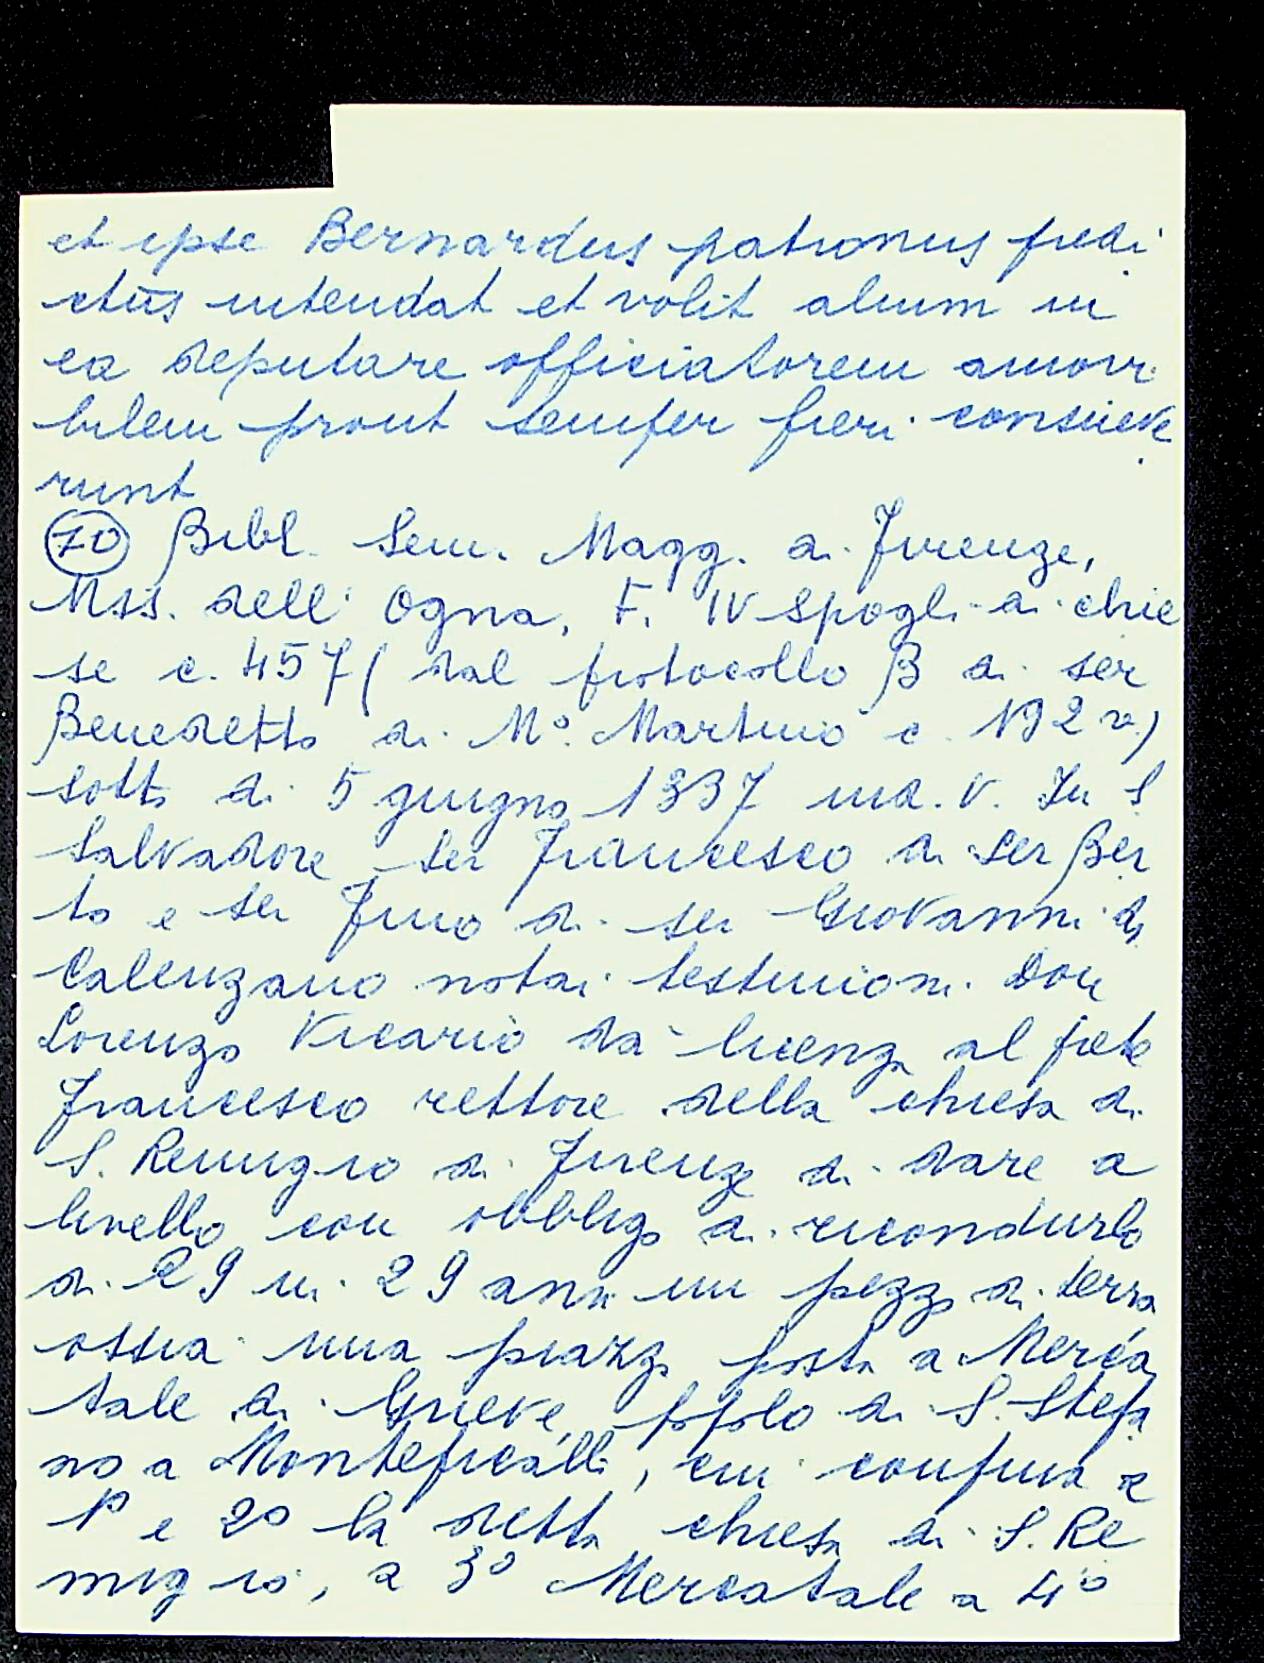 et ipse Bernardus patronus predi
ctus intendat et volit alium in
ea deputare officiatorem amovi
bilem prout semper fieri consueve
runt
(70) Bibl. Sem. Magg. di Firenze,
Mss. dell'Ogna, F. IV Spogli di chie
se c. 457 (dal protocollo B di ser
Benedetto di Mo. Martino c. 192 v)
sotto di 5 giugno 1337 ind. V. In S
Salvadore ser Francesco di ser Ber
to e ser Fino di ser Giovanni di
Calenzano notai testimoni. Don
Lorenzo Vicario dà licenza al prete
Francesco rettore della chiesa di
S. Remigio di Firenze di dare a
livello con obbligo di ricondurlo
di 29 in 29 anni un pezzo di terra
ossia una piazza posta a Merca
tale di Greve, popolo di S. Stefa
no a Monteficalli, cui confina a
1º e 2º la detta chiesa di S. Re
migio, a 3º Mercatale a 4º